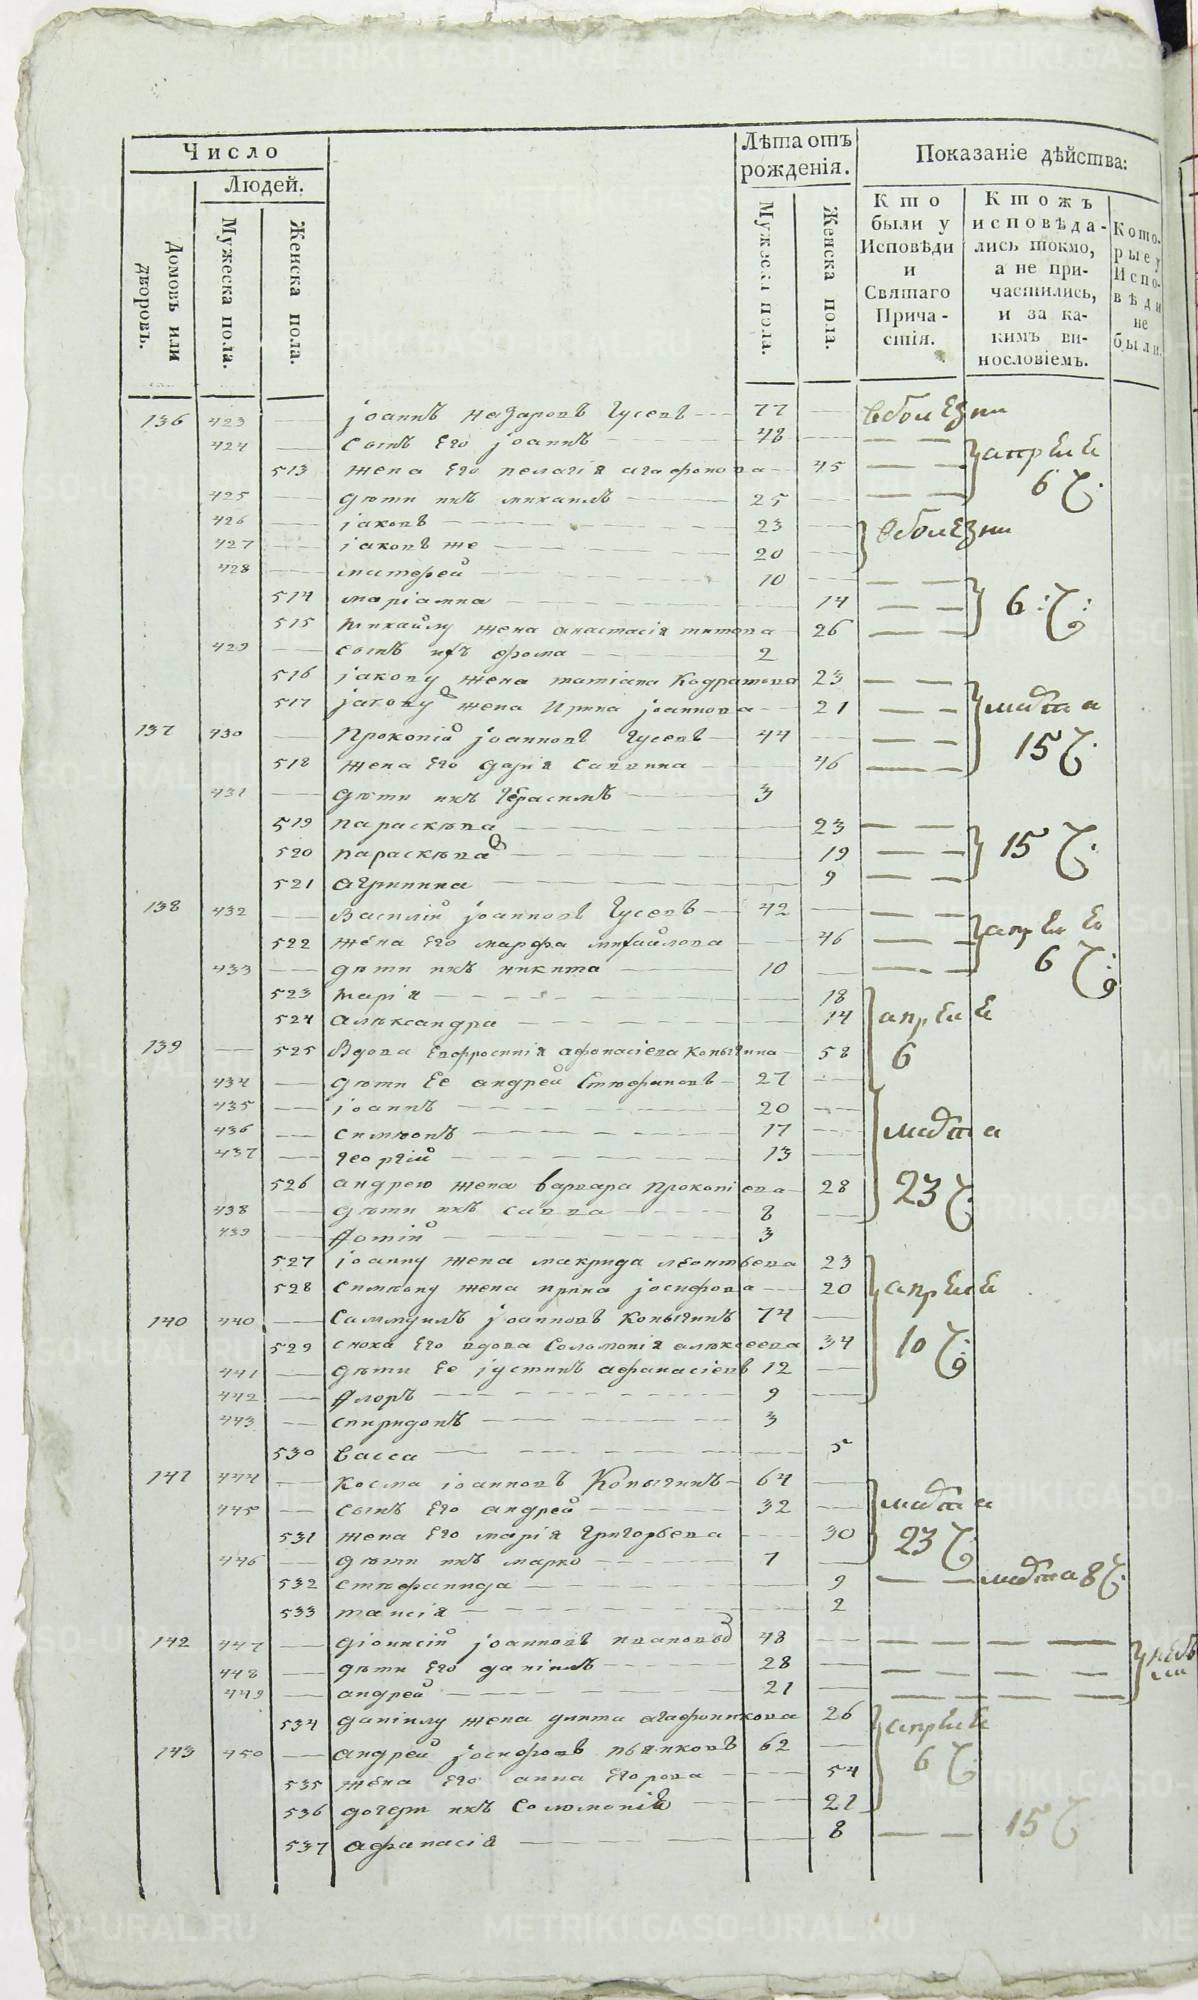 Число
Людей.
Домовъ или дворовъ.
Мужеска пола.
Женска пола.
Лѣта отъ рожденія.
Мужеска пола.
Женска пола.
Показаніе дѣйства:
Кто были у Исповѣди и Святаго Причастія.
Ктожъ исповѣдались токмо, а не причастились, и за какимъ винословіемъ.
Которые у Исповѣди не были.
136 423 іоаннъ Назаровъ Гусевъ 77 вболезни
424 сынъ Его іоаннъ 48
513 жена Его пелагія агафонова 45 апреля
425 дѣти ихъ михаилъ 25 6 Ч:
426 іаковъ 23 вболезни
427 іаковъ же 20
428 матфей 10
514 маріамна 14 6 : Ч:
515 михайлу жена анастасія титова 26
429 сынъ ихъ фома 2
516 іакову жена татіана Кодратова 23
517 іакову жена Ирина іоаннова 21 марта
137 430 Прокопій іоанновъ Гусевъ 44 15 Ч.
518 жена Его дарія Саввина 46
431 дѣти ихъ Герасимъ 3
519 параскева 23
520 параскева 19 15 Ч.
521 агрипина 9
138 432 Василій іоанновъ Гусевъ 42 апреля
522 жена Его марфа михайлова 46
433 дѣти ихъ никита 10 6 Ч:
523 марія 18
524 александра 14 апреля
139 525 Вдова Евфросинія афонасіева Копыгина 58 6
434 дѣти Ее андрей Стефановъ 27
435 іоаннъ 20
436 симеонъ 17 марта
437 георгій 13
526 андрею жена варвара Прокопіева 28 23 Ч.
438 дѣти ихъ савва 8
439 Фотій 3
527 іоанну жена макрида леонтьева 23
528 симеону жена ирина іосифова 20 апреля
140 440 Самуилъ іоанновъ Копыгинъ 74
529 сноха Его вдова Соломонія алексеева 34 10 Ч:
441 дѣти Ее іустинъ афанасіевъ 12
442 Флоръ 9
443 спиридонъ 3
530 васса 5
141 444 косма іоанновъ Копыгинъ 64
445 сынъ Его андрей 32 марта
531 жена Его марія Григорьева 30 23 Ч.
446 дѣти ихъ марко 7
532 стефанида 9 марта 8 Ч.
533 таисія 2
142 447 діонисій іоанновъ ивановъ 48 небыли
448 дѣти Его даніилъ 28
449 андрей 21
534 даніилу жена агафоникова 26 апреля
143 450 андрей іосифовъ пьянковъ 62 6 Ч.
535 жена Его анна Егорова 54
536 дочери ихъ Соломонія 21
537 афанасія 8 15 Ч
METRIKI.GASO-URAL.RU